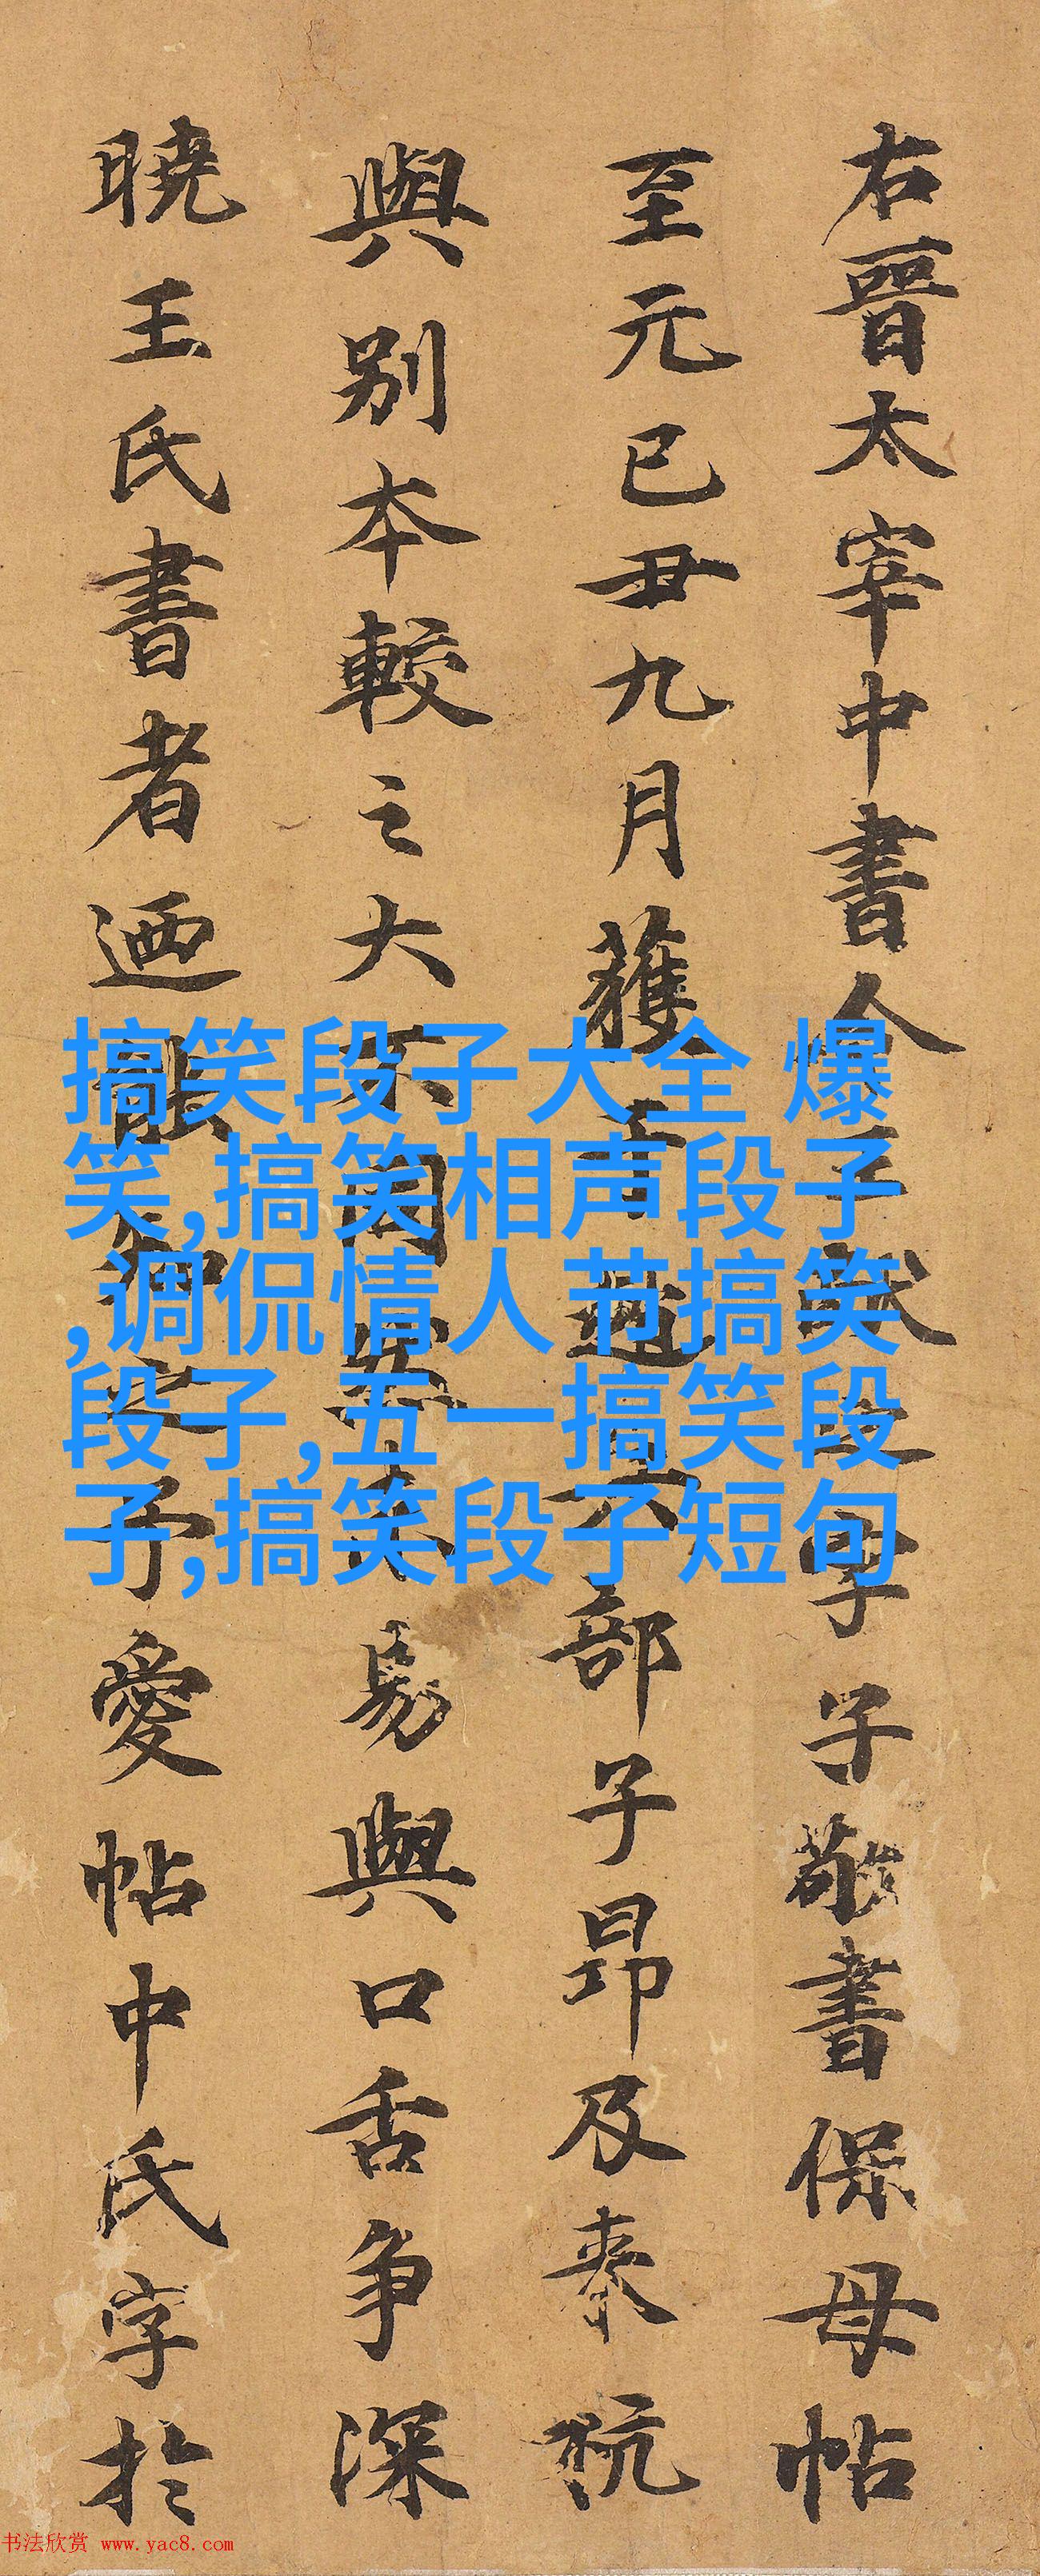 右晉太宰中書令王獻之字子敬書保母帖
至元己丑九月獲于越
部子昂及泰
與別本較之大不同
易與口舌争深
曉王氏書者迺能知之予愛帖中氏字於
搞笑段子大全 爆
笑,搞笑相声段子
,调侃情人节搞笑
段子,五一搞笑段
子,搞笑段子短句
书法欣赏 www.yac8.com